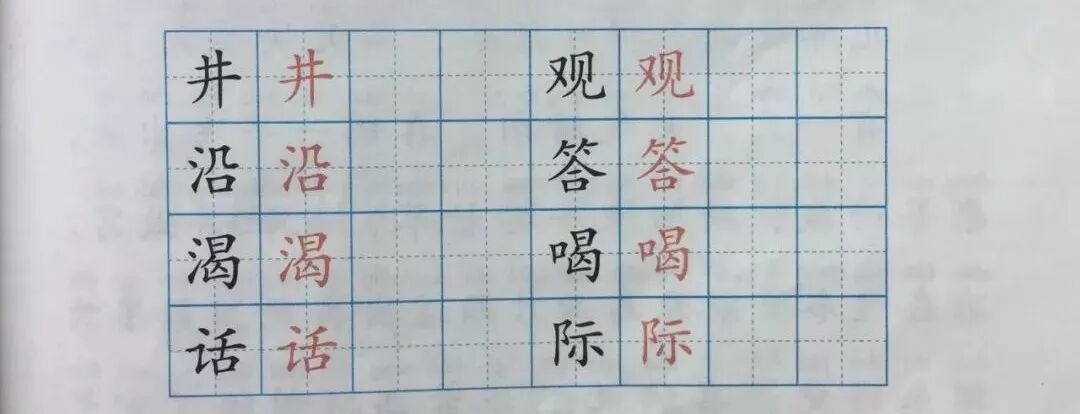 井 井 观 观
沿 沿 答 答
渴 渴 喝 喝
话 话 际 际